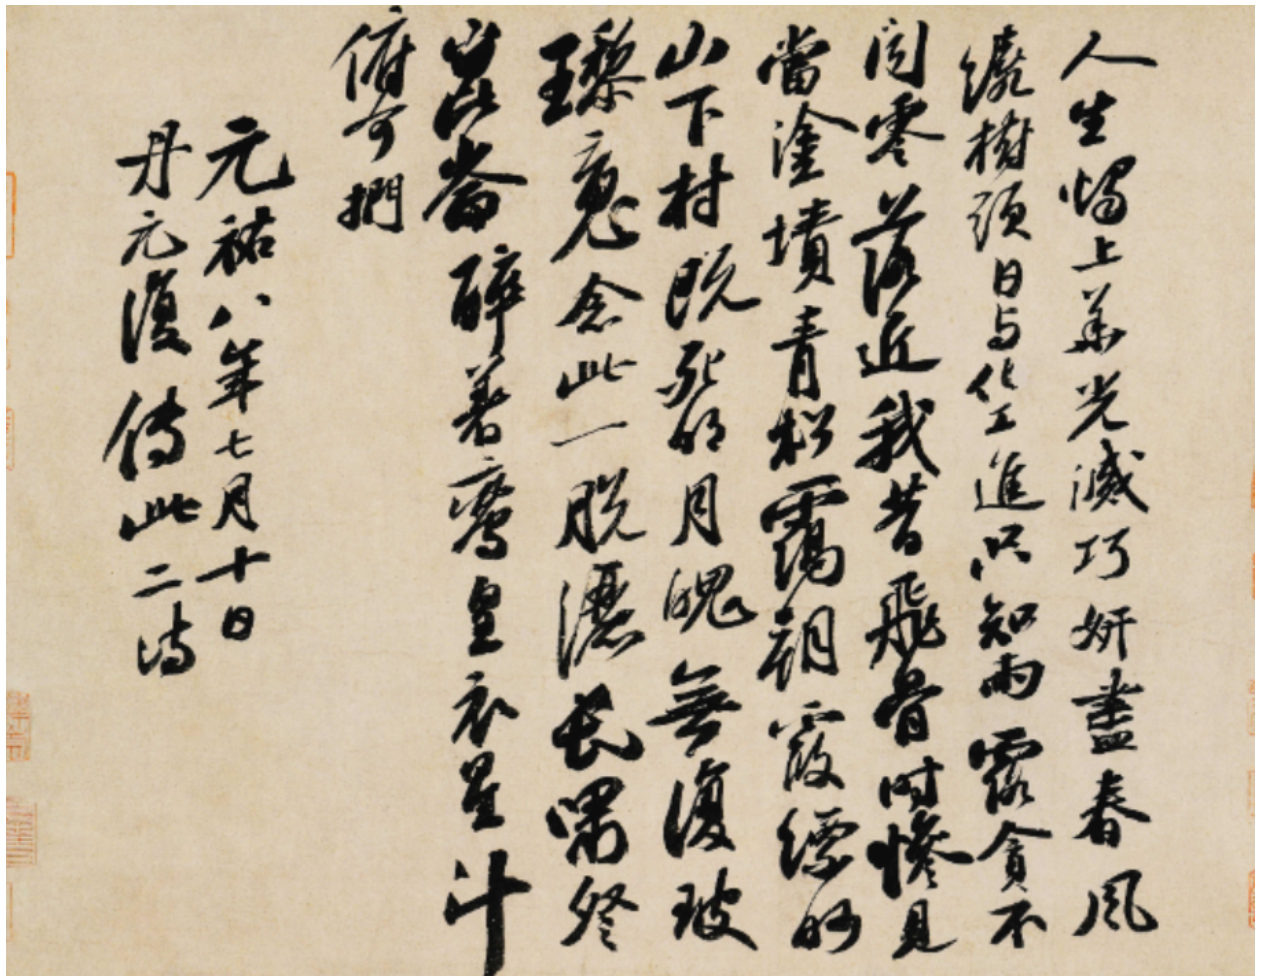 人生燭上華光滅巧妍盡春風
繞樹頭日與化工進只知雨露貪不
聞零落近我昔飛骨時慘見
當塗墳青松靄朝霞縹眇
山下村既死明月魄無復玻
瓈魂念此一脫灑長嘯登
崑崙醉著鸞皇衣星斗
俯可捫
元祐八年七月十日
丹元復傳此二詩